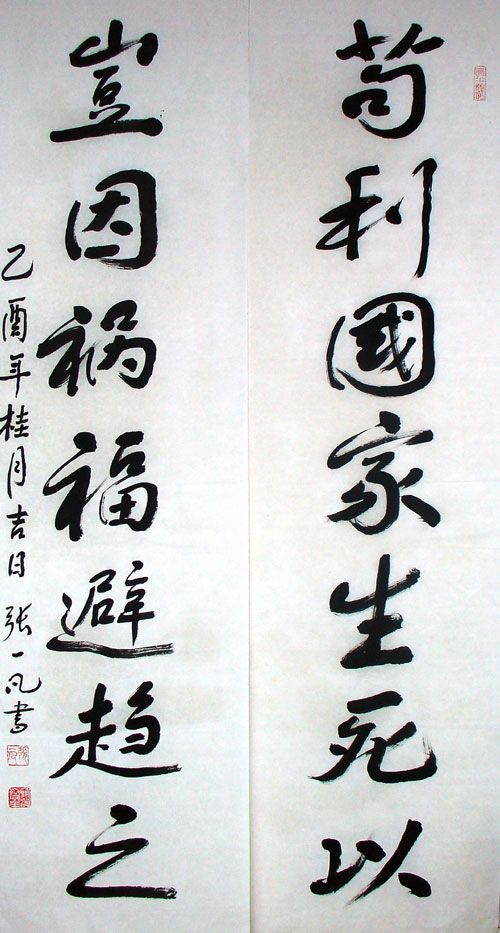 苟利國家生死以
豈因祸福避趋之
乙酉年桂月吉日 张一凡書